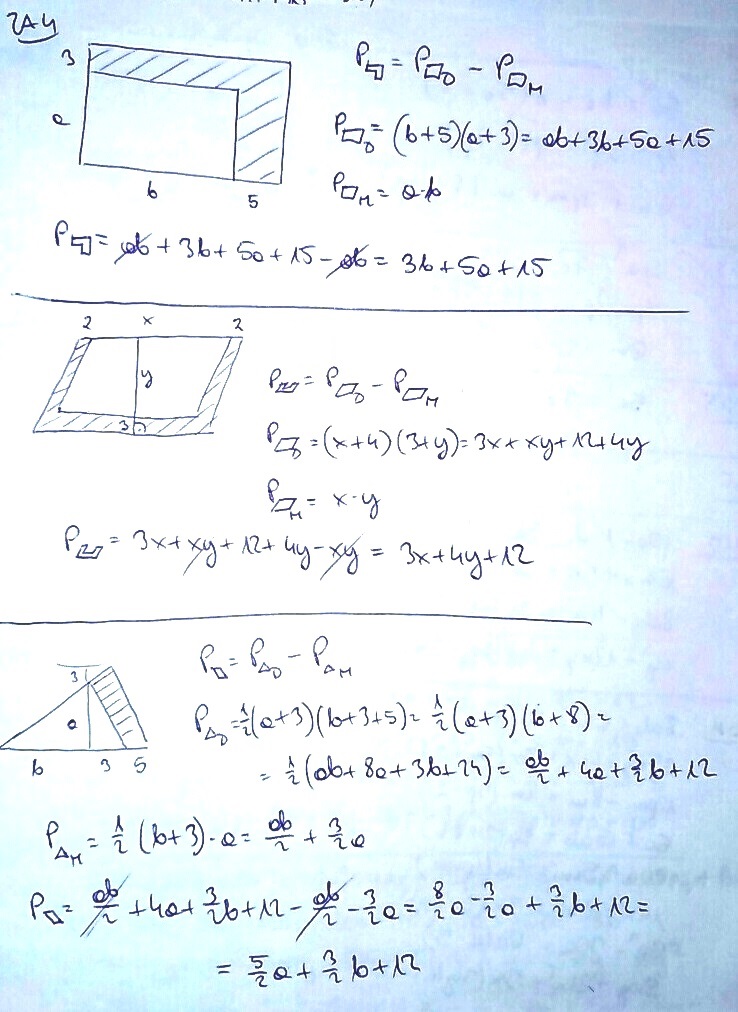 ZA4
3
a
b
5
P▱ = P▱D - P▱M
P▱D = (b+5)(a+3) = ab+3b+5a+15
P▱M = a·b
P▱ = ab + 3b + 5a + 15 - ab = 3b + 5a + 15
2 x 2
y
3
P▱ = P▱D - P▱M
P▱D = (x+4)(3+y) = 3x + xy + 12 + 4y
P▱M = x·y
P▱ = 3x + xy + 12 + 4y - xy = 3x + 4y + 12
3
a
b 3 5
P▱ = P△D - P△M
P△D = 1/2(a+3)(b+3+5) = 1/2(a+3)(b+8) =
= 1/2(ab + 8a + 3b + 24) = ab/2 + 4a + 3/2b + 12
P△M = 1/2(b+3)·a = ab/2 + 3/2a
P▱ = ab/2 + 4a + 3/2b + 12 - ab/2 - 3/2a = 8/2a - 3/2a + 3/2b + 12 =
= 5/2a + 3/2b + 12